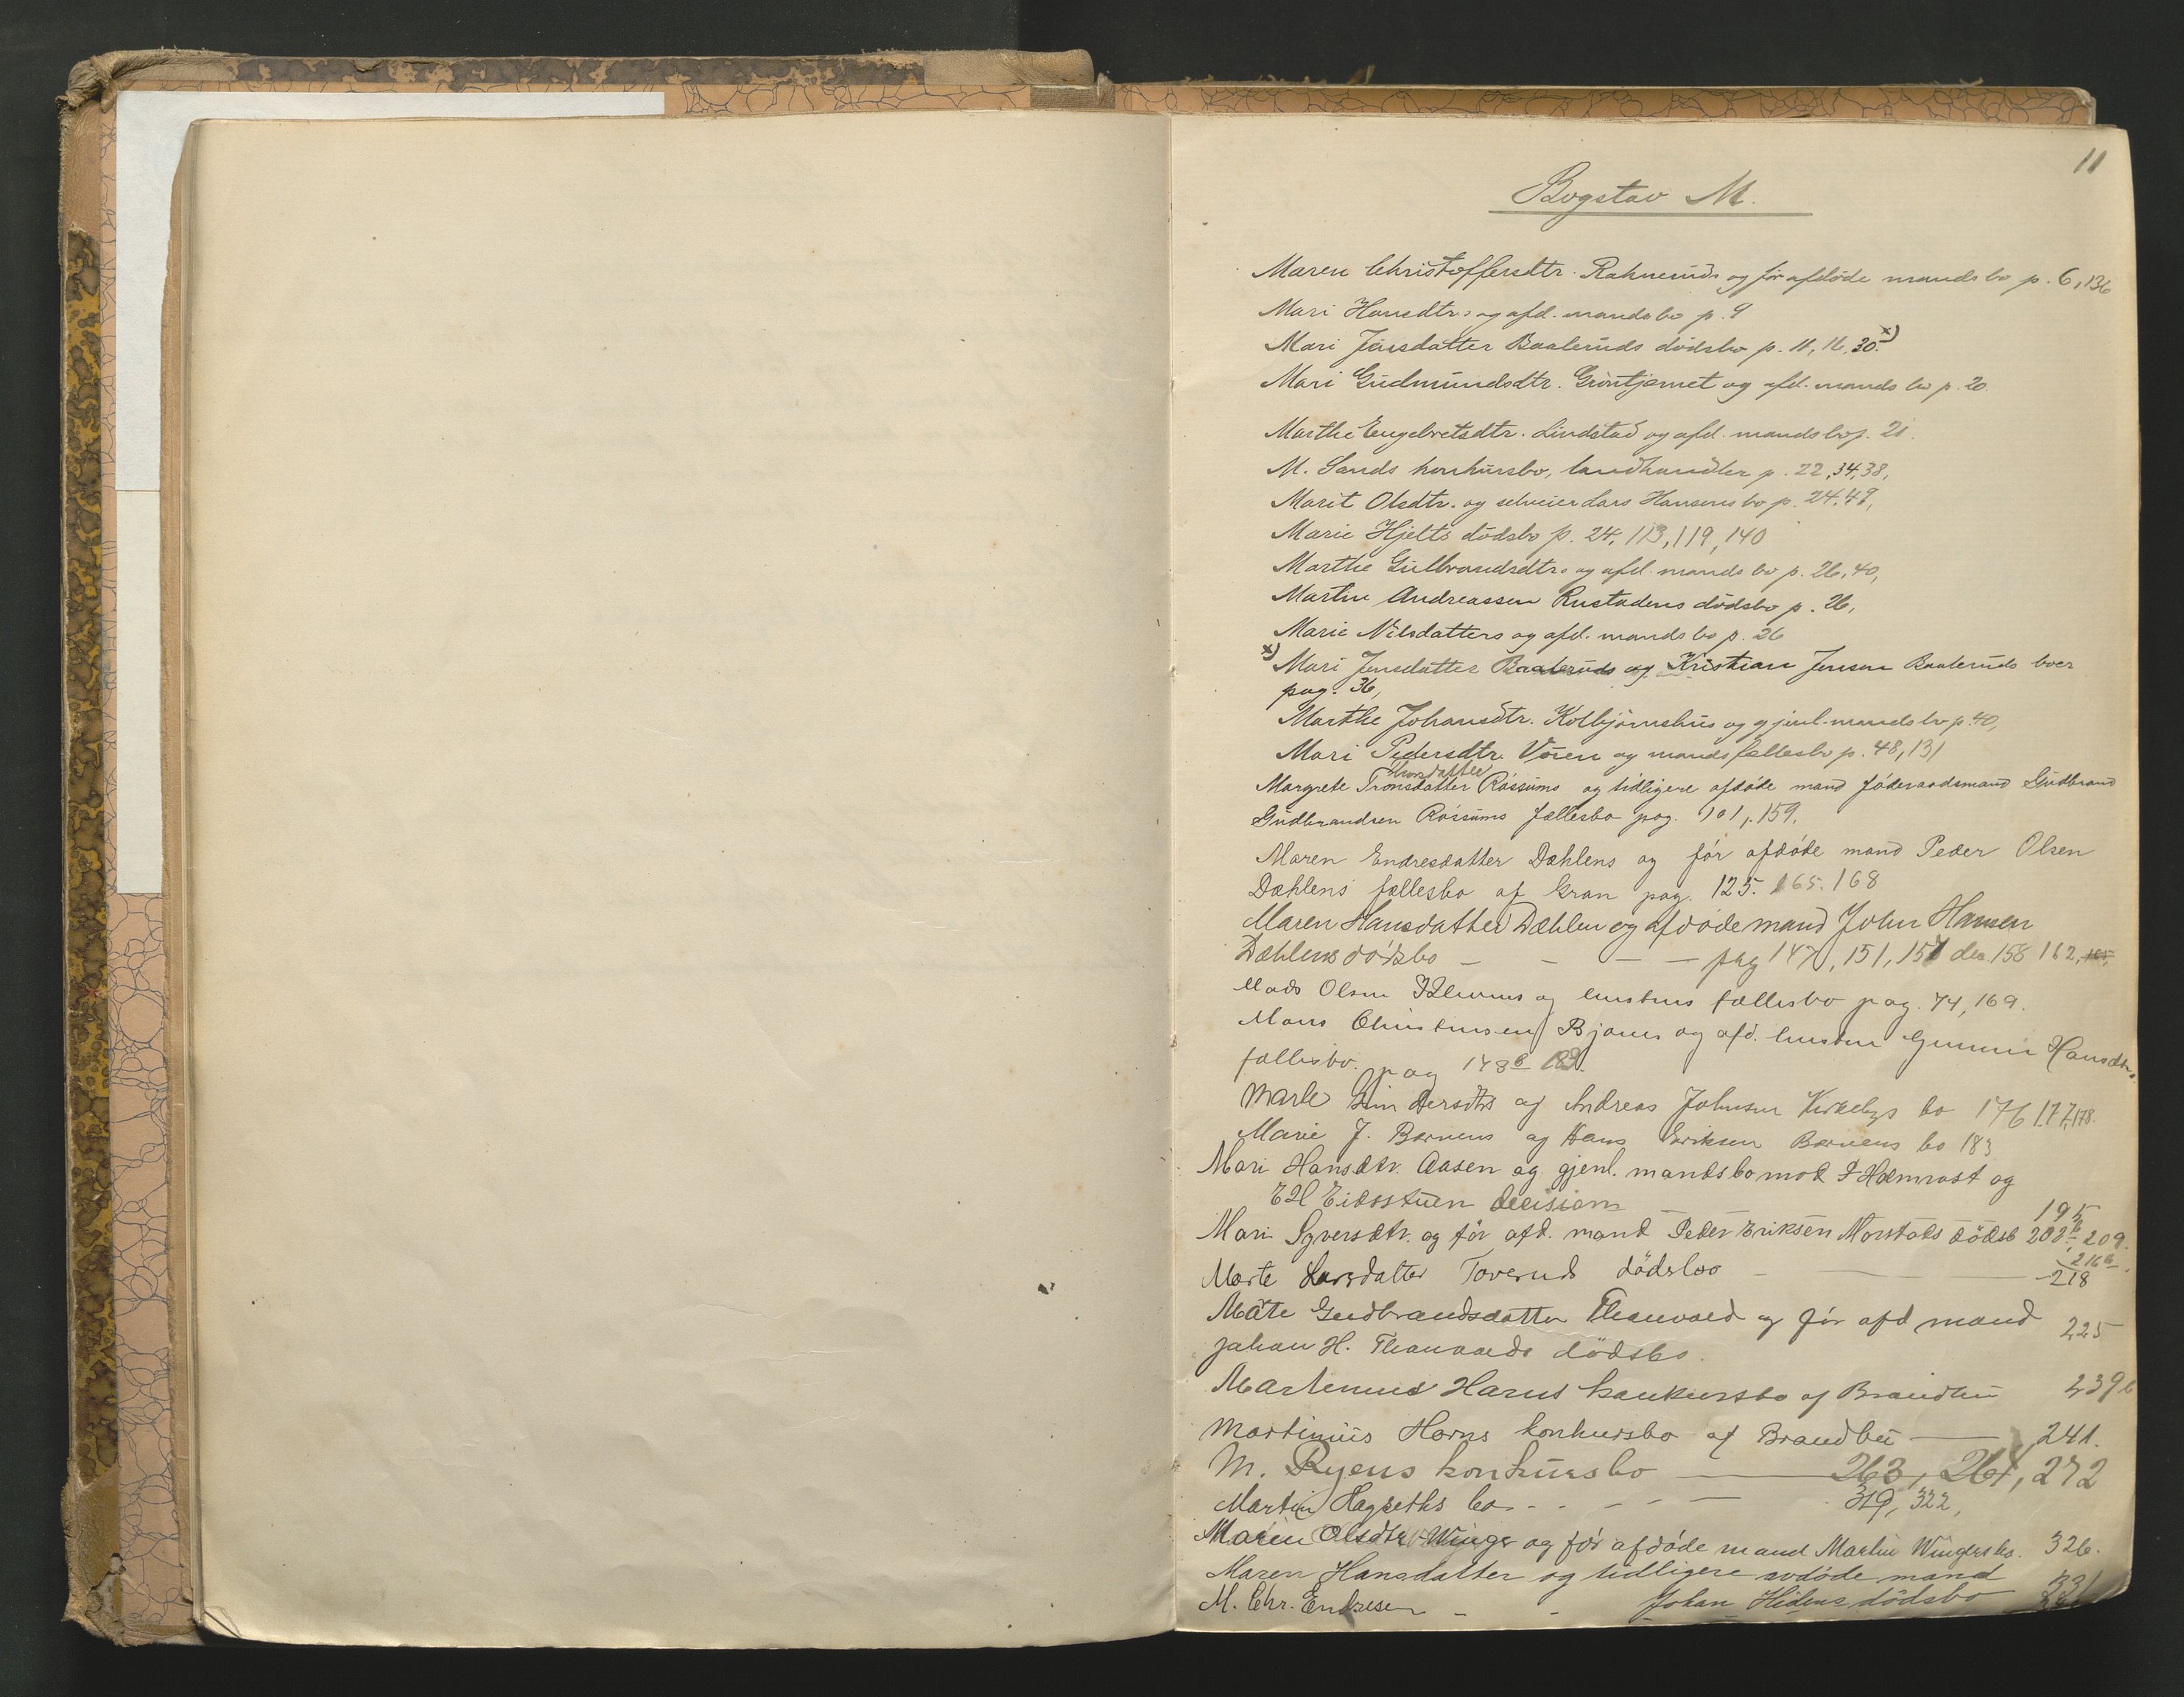 11
Bogstav M.
Maren Christoffersdtr. Rahneruds og før afdøde mands bo p. 6, 136
Mari Hansdtrs og afd. mands bo p. 9
Mari Jensdatter Baaleruds dødsbo p. 11, 16, 30. x)
Mari Gudmundsdtr. Grøntjernet og afd. mands bo p. 20.
Marthe Engebretsdtr. Lindstad og afd. mands bo p. 21.
M. Sands konkursbo, landhandler p. 22, 34, 38,
Marit Olsdtr. og selveier Lars Hansens bo p. 24, 49,
Marie Hjelts dødsbo p. 24, 113, 119, 140
Marthe Gulbrandsdtrs og afd. mands bo p. 26, 40,
Martin Andreassen Rustadens dødsbo p. 26,
Marie Nilsdatters og afd. mands bo p. 26
x) Mari Jensdatter Baaleruds og Kristian Jensen Baaleruds boer
pag. 36,
Marthe Johansdtr. Kolbjørnshus og gjenl. mands bo p. 40,
Mari Pedersdtr. Vøien og mands fællesbo p. 48, 131
Thorsdatter
Margrete Tronsdatter Røssums og tidligere afdøde mand føderaadsmand Gudbrand
Gudbrandsen Røssums fællesbo pag. 101, 159.
Maren Endresdatter Dæhlens og før afdøde mand Peder Olsen
Dæhlens fællesbo af Gran pag. 125. 165. 168
Maren Hansdatter Dæhlen og afdøde mand John Hansen
Dæhlens dødsbo - - - - pag 147, 151, 157 do 158 162, 165,
Mads Olsen og hustrus fællesbo pag. 74, 169.
Mons Christensen Bjones og afd. hustru Hansdtrs
fællesbo. pag 148 b 189.
Marte og Andreas Johnsen Kirkebys bo 176 177, 178.
Marie J. Bervens og Hans Eriksen Bervens bo 183
Mari Hansdtr. Aasen og gjenl. mands bo mod I Hæmrast og
E H Eidsstuen decision — — 195
Mari Syversdtr. og før afd. mand Peder Eriksen Morstads dødsb 202 b, 209.
216 b.
Marte Larsdatter Toveruds dødsbo — 218
Mate Gudbrandsdatter Thanvold og før afd mand 225
Johan H. dødsbo.
Martinius Horns konkursbo af Brandbu 239 b
Martinius Horns konkursbo af Brandbu — 241.
M. Ryens konkursbo — 263, 264, 272
Martin Hagseths bo - - - - 319, 322,
Maren Olsdtr. Winger og før afdøde mand Martin Wingers bo. 326.
Maren Hansdatter og tidligere avdøde mand
Johan Hidens dødsbo 331
M. Chr. Endresen - - -